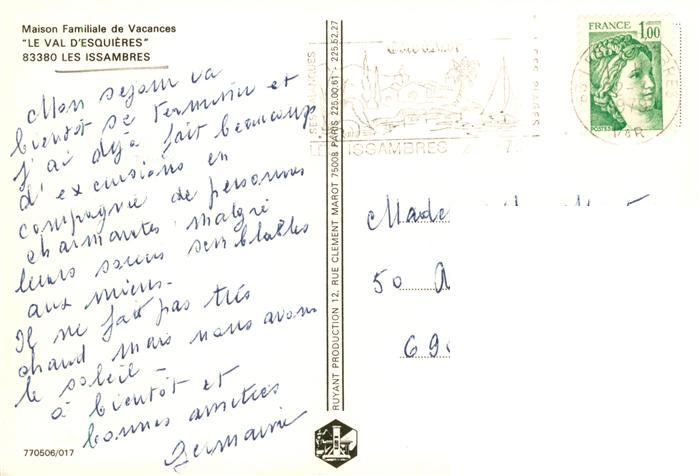 Maison Familiale de Vacances
"LE VAL D'ESQUIÈRES"
83380 LES ISSAMBRES
Mon sejour va
bientôt se terminer et
j'ai déjà fait beaucoup
d'excursions en
compagnie de personnes
charmantes malgré
leurs soucis semblables
aux miens.
Il ne fait pas très
chaud mais nous avons
le soleil -
à bientôt et
bonnes amitiés
Germaine
770506/017
RUYANT PRODUCTION 12, RUE CLEMENT MAROT 75008 PARIS 225.00.61 - 225.52.27
ISSAMBRES
FRANCE
1,00
POSTES
VAR
50
69